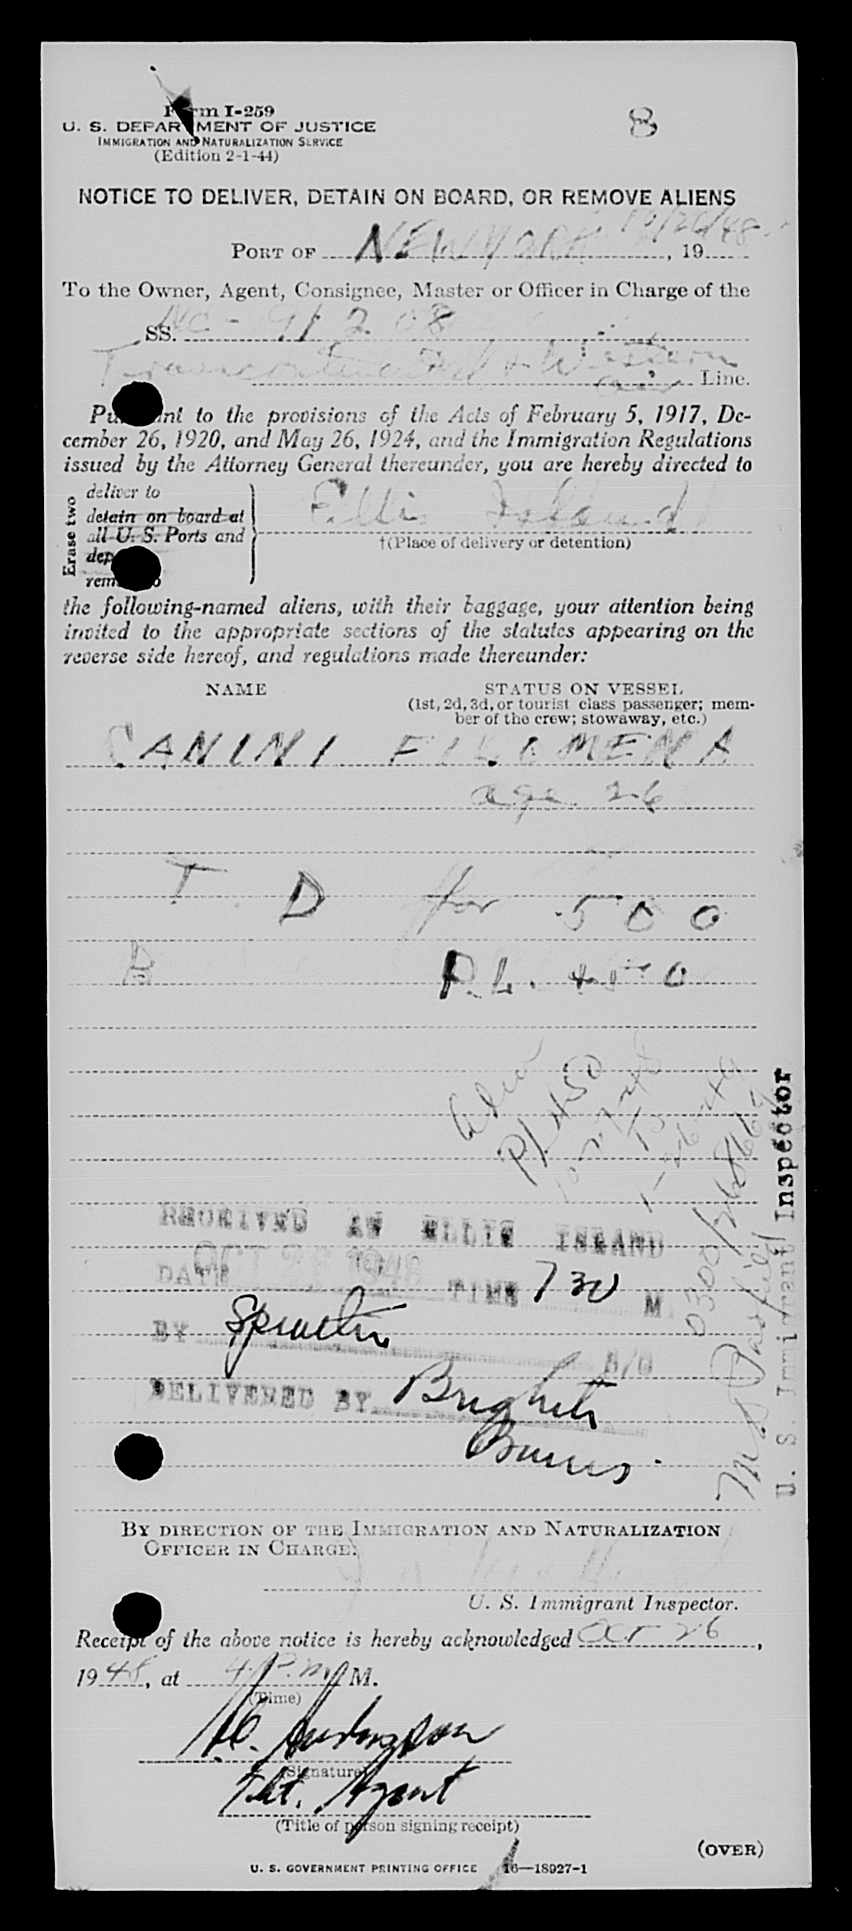 Form I-259
8
U. S. DEPARTMENT OF JUSTICE
IMMIGRATION AND NATURALIZATION SERVICE
(Edition 2-1-44)
NOTICE TO DELIVER, DETAIN ON BOARD, OR REMOVE ALIENS
PORT OF NEW YORK 10/26/48, 19
To the Owner, Agent, Consignee, Master or Officer in Charge of the
SS. NC-91208
Transcontinental & Western
air Line.
Pursuant to the provisions of the Acts of February 5, 1917, De-
cember 26, 1920, and May 26, 1924, and the Immigration Regulations
issued by the Attorney General thereunder, you are hereby directed to
Erase two
deliver to
detain on board at
all U. S. Ports and
remove to
Ellis Island
†(Place of delivery or detention)
the following-named aliens, with their baggage, your attention being
invited to the appropriate sections of the statutes appearing on the
reverse side hereof, and regulations made thereunder:
NAME
STATUS ON VESSEL
(1st, 2d, 3d, or tourist class passenger; mem-
ber of the crew; stowaway, etc.)
CANINI FILOMENA
age 26
T. D for 500
B P.L. 450
P/L 450
To
1-26-49
0300/268669
U. S. Immigrant Inspector
RECEIVED AT ELLIS ISLAND
DATE OCT 26 1948 TIME 730 M
BY
DELIVERED BY
Burns
BY DIRECTION OF THE IMMIGRATION AND NATURALIZATION
OFFICER IN CHARGE:
U. S. Immigrant Inspector.
Receipt of the above notice is hereby acknowledged Oct 26,
1948, at 4 P.m. M.
(Time)
(Signature)
Agent
(Title of person signing receipt)
(OVER)
U. S. GOVERNMENT PRINTING OFFICE 16—18927-1